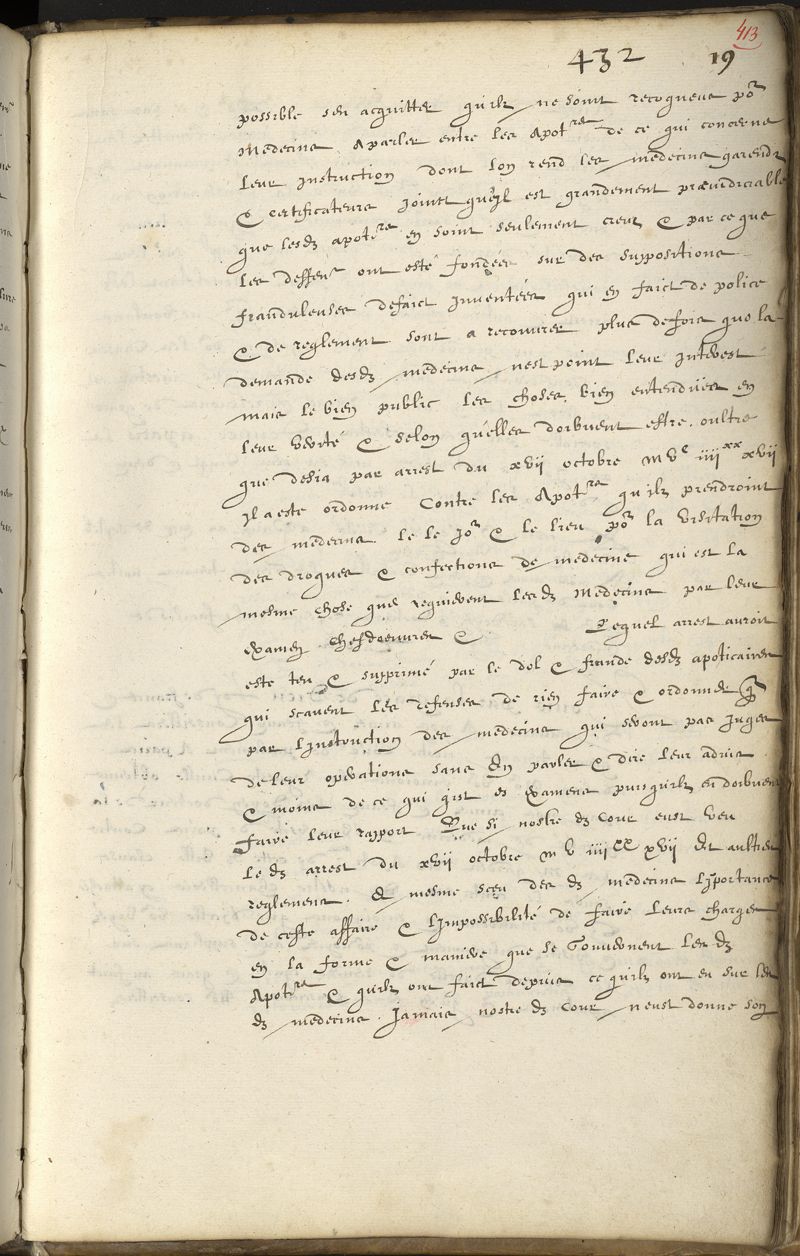 413
432 19
possible sen acquitter quilz ne soint recogneus por
Medecins A parler entre les Apotres de ce qui concerne
leur Instruction dont lon rend les medecins garendz
& certificateurs joinct quil est grandement præiudiciable
que lesdz apotres en soint seulement creuz & par ce que
les deffenses ont esté fondées sur des suppositions
frauduleuses defaict Inventées qui en faict de police
& de reglement sont a recouvrer plus defois que la
demande desdz medecins nest point leur Interest
mais le bien public les choses bien entendües en
leur verité & selon quelles doibvent estre. oultre
que desia par arrest du xvii octobre mvc iiiixx xvii
Il a este ordonne Contre les Apotres quilz prendroint
des medecins le le Jor & le lieu por la visitation
des drogues & confections de medecine qui est la
mesme chose que requierent lesdz Medecins par leur
examen chefdoeuvres & Lequel arrest auroit
este teu & supprimé par le dol & fraude desdz apoticaires
qui scavent les defenses de rien faire & ordonner
par linstruction des medecins qui seront pas juges
de leur operations sans en parler & dire leur advis
& moins de ce qui gist es examens puisquilz en doibvent
faire leur rapport Que si nostre dz Cour eust veu
le dz arrest du xvii octobre m v iiiixx xvii et aultres
reglemens. & mesme sceu des dz medecins ljportance
de ceste affaire & lImpossibilité de faire leurs charges
en la forme & maniere que se Gouvernent les dz
Apotres & quilz ont faict depuis ce quilz ont eu sur les
dz medecins. Jamais nostre dz Cour neust donne son